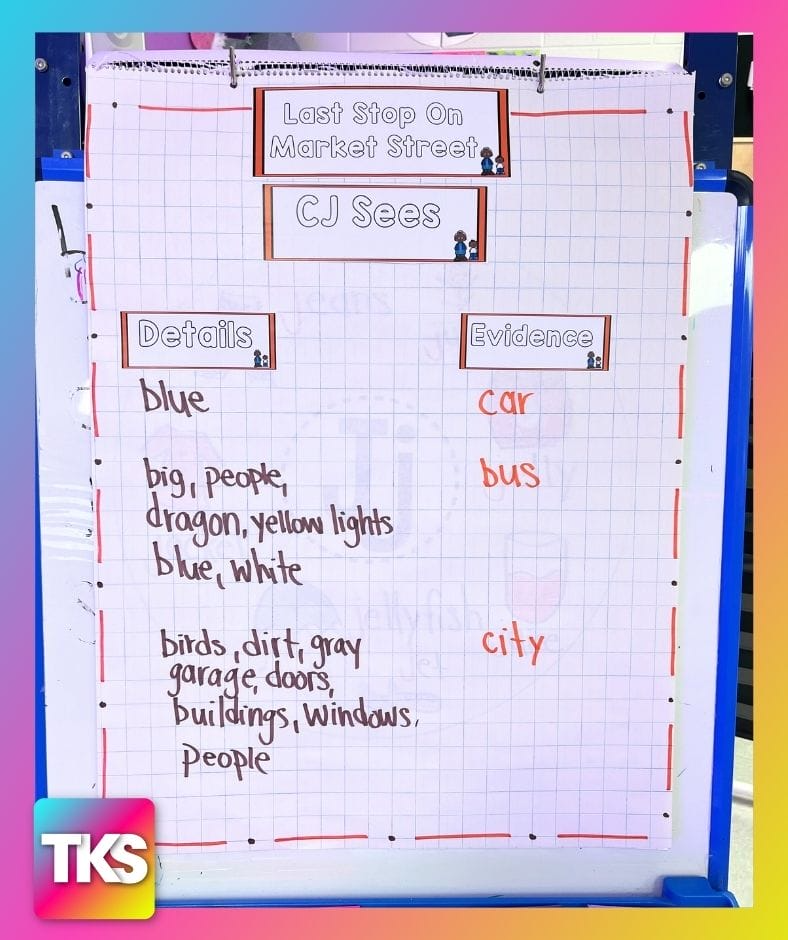 Last Stop On
Market Street
CJ Sees
Details
Evidence
blue
car
big, people,
bus
dragon, yellow lights
blue, white
birds, dirt, gray
city
garage, doors,
buildings, windows,
people
TKS